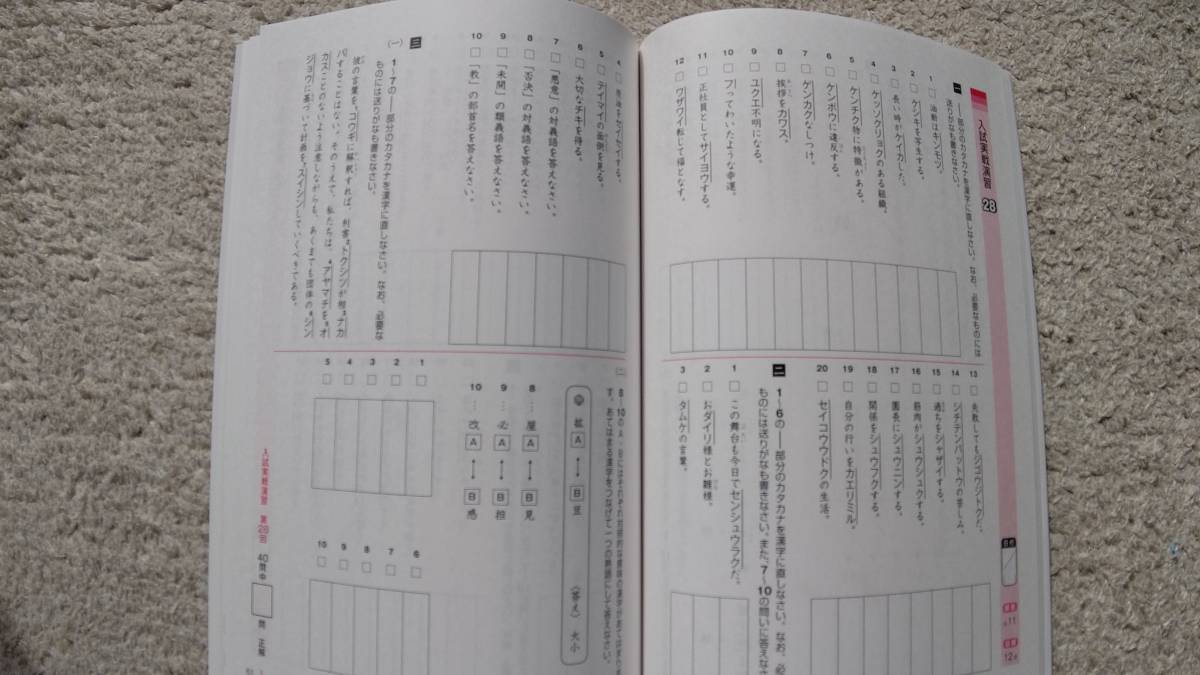 入試実戦演習 28
一 ――部分のカタカナを漢字に直しなさい。なお、必要なものには
送りがなも書きなさい。
1 油断はキンモツ。
2 ケシキを写生する。
3 長い時がケイカした。
4 ケッソクリョクのある組織。
5 ケンチク物に特徴がある。
6 ケンポウに違反する。
7 ケンカクなしつけ。
8 挨拶をカワス。
9 ユクエ不明になる。
10 フってわいたような幸運。
11 正社員としてサイヨウする。
12 ワザワイ転じて福となす。
13 失敗しても
14 シチテンバットウの苦しみ。
15 過ちをシャザイする。
16 筋肉がシュウシュクする。
17 園長にシュウニンする。
18 関係をシュウフクする。
19 自分の行いをカエリミル。
20 セイコウウドクの生活。
二 1〜6の――部分のカタカナを漢字に直しなさい。なお、必
ものには送りがなも書きなさい。また、7〜10の問いに答えな
1 この舞台も今日でセンシュウラクだ。
2 おダイリ様とお雛様。
3 タムケの言葉。
4 セイセイする。
5 テイマイの面倒を見る。
6 大切なチキを得る。
7 「悪意」の対義語を答えなさい。
8 「否決」の対義語を答えなさい。
9 「未開」の類義語を答えなさい。
10 「教」の部首名を答えなさい。
三
(一) 1〜7の――部分のカタカナを漢字に直しなさい。なお、必要な
ものには送りがなも書きなさい。
彼の言葉を、コウギに解釈すれば、利害トクシツが相ナカ
バすることはない。そのうえで、私たちは、アヤマチをオ
カスことのないよう注意しながらも、あくまでも団体のシン
ジョウに基づいて計画をスイシンしていくべきである。
(二) 8〜10のA・Bにはそれぞれ対照的な意味の漢字があてはまりま
す。あてはまる漢字をつなげて一つの熟語にして答えなさい。
例 拡A ↔ B豆 〈答え〉大小
8 …屋A ↔ B見
9 …必A ↔ B担
10 …改A ↔ B惑
1
2
3
4
5
6
7
8
9
10
入試実戦演習 第28回 40問中 問 正解
11
12